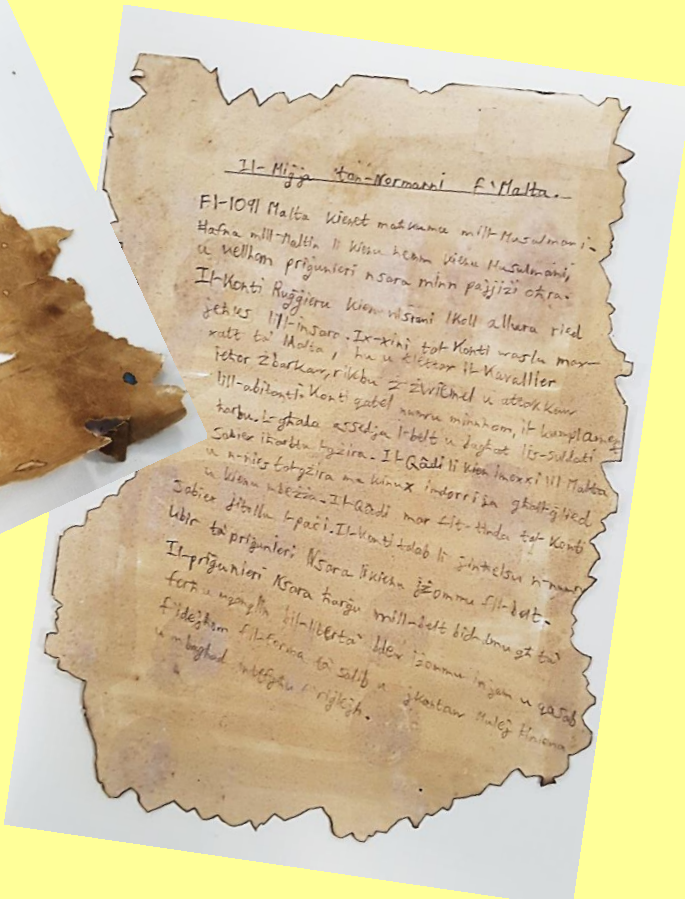 Il-Miġja tan-Normanni f'Malta.
Fl-1091 Malta kienet maħkuma mill-Musulmani.
Ħafna mill-Maltin li kienu hemm kienu Musulmani,
u kellhom priġunieri nsara minn pajjiżi oħra.
Il-Konti Ruġġieru kien nisrani u allura ried
jeħles lill-insara. Ix-xini tal-Konti waslu max-
xatt ta' Malta, hu u tlettax il-Kavallier
ieħor żbarkaw, rikbu ż-żwiemel u attakkaw
lill-abitanti. Konti qatel numru minnhom, il-kumplament
ħarbu. L-għada assedja l-belt u bagħat lis-suldati
Sabiex iħarbtu l-gżira. Il-Qâdi li kien imexxi lil Malta
u n-nies tal-gżira ma kinux imdorrija għall-ġlied
u kienu mbeżża. Il-Qâdi mar fit-tinda tal-Konti
Sabiex jitolbu l-paċi. Il-Konti talab li jinħelsu n-numru
kbir ta' priġunieri Nsara li kienu jżommu fil-belt.
Il-priġunieri Nsara ħarġu mill-belt bid-dmugħ ta'
ferħ u għall-libertà bdew jżommu injam u qasab
f'idejhom fil-forma ta' salib u jkantaw Mulej Ħniena
u mbagħad intefgħu f'riġlejh.